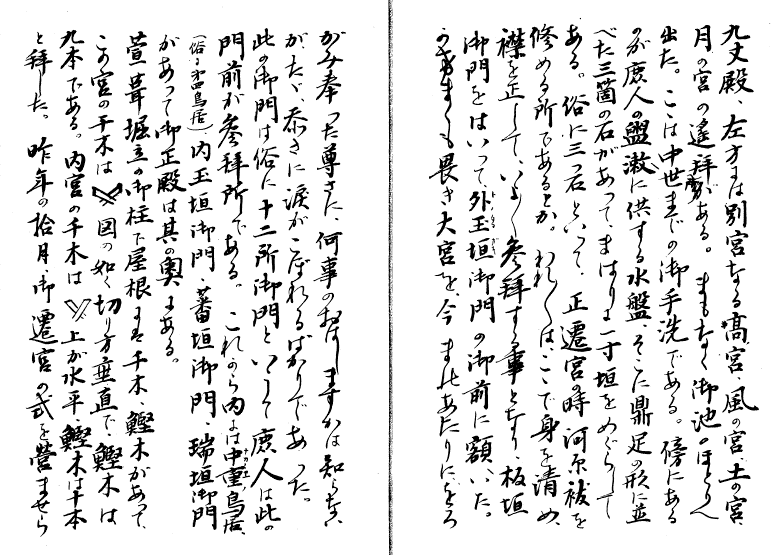 九丈殿、左方は別宮なる高宮、風の宮、土の宮、
月の宮の遙拝所がある。まもなく御池のほとりへ
出た。ここは中世までの御手洗である。傍にある
のが庶人の盥漱に供する水盤、そこに鼎足の形に並
べた三箇の石があって、まはりに一寸垣をめぐらして
ある。俗に三つ石といって、正遷宮の時河原祓を
修める所であるとか。われ〳〵は、ここで身を清め、
襟を正して、いよ〳〵参拝する事となり、板垣
御門をはいって、外玉垣御門の御前に額いた。
かけまくも畏き大宮を、今まのあたりにをろ
がみ奉った尊さに、何事のおはしますかは知らない
が、たゞ忝さに涙がこぼれるばかりであった。
此の御門は俗に十二所御門といって庶人は此の
門前が参拝所である。これから内には中重鳥居、
(俗に 鳥居)内玉垣御門、蕃垣御門、瑞垣御門
があって御正殿は其の奥にある。
萱葺堀立の御柱で屋根には千木、鰹木があって、
この宮の千木は 図の如く切り方垂直で、鰹木は
九本である。内宮の千木は 上が水平、鰹木は十本
と拝した。昨年の拾月、御遷宮の式を営ませら